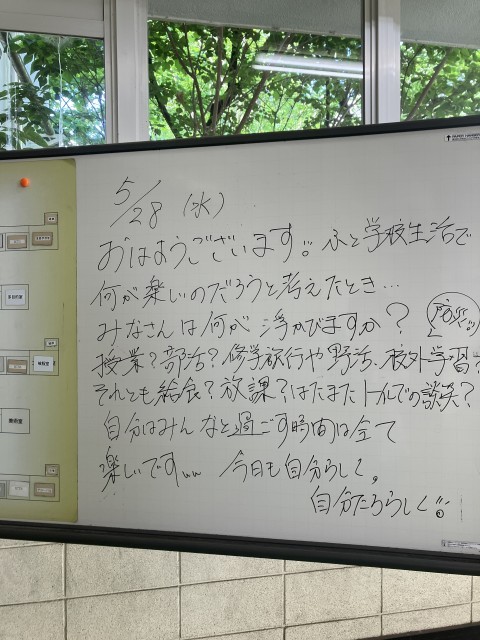 5/28 (水)
おはようございます!! ふと学校生活で
何が楽しいのだろうと考えたとき…
みなさんは何が浮かびますか?
授業?部活?修学旅行や野活、校外学習?
それとも給食?放課?はたまたトイレでの談笑?
自分はみんなと過ごす時間は全て
楽しいです。 今日も自分らしく。
自分たちらしく!!